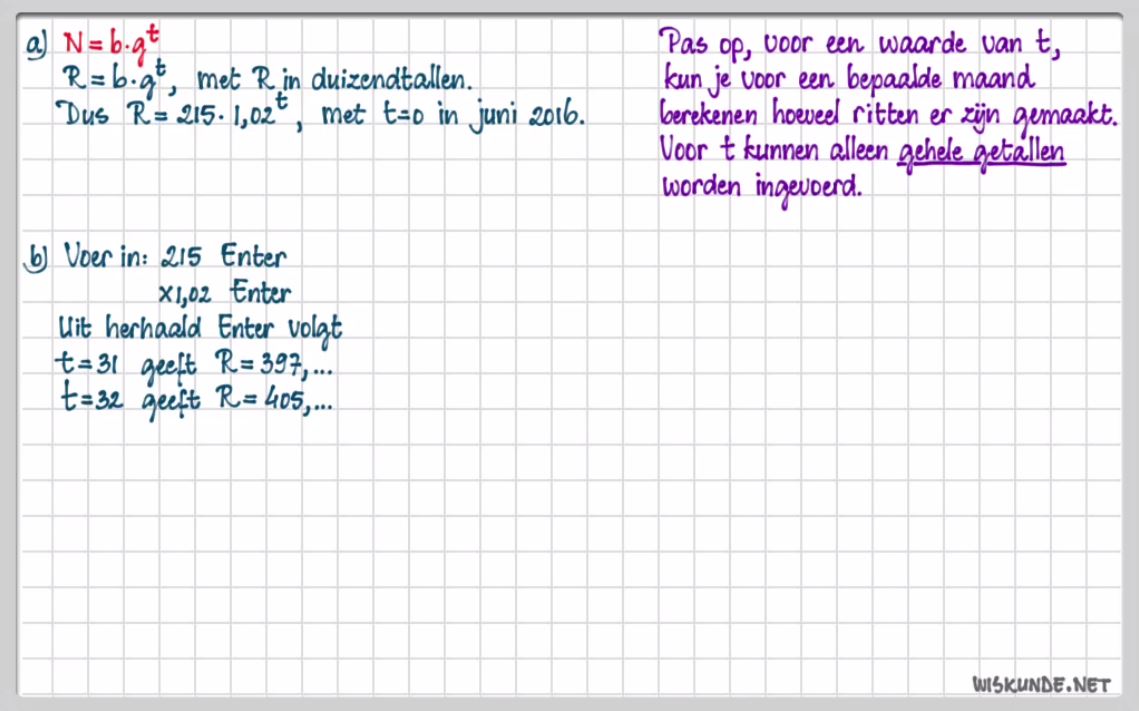 a) N = b·g^t
R = b·g^t, met R in duizendtallen.
Dus R = 215·1,02^t, met t=0 in juni 2016.
Pas op, voor een waarde van t,
kun je voor een bepaalde maand
berekenen hoeveel ritten er zijn gemaakt.
Voor t kunnen alleen gehele getallen
worden ingevoerd.
b) Voer in: 215 Enter
×1,02 Enter
Uit herhaald Enter volgt
t=31 geeft R=397,...
t=32 geeft R=405,...
WISKUNDE.NET